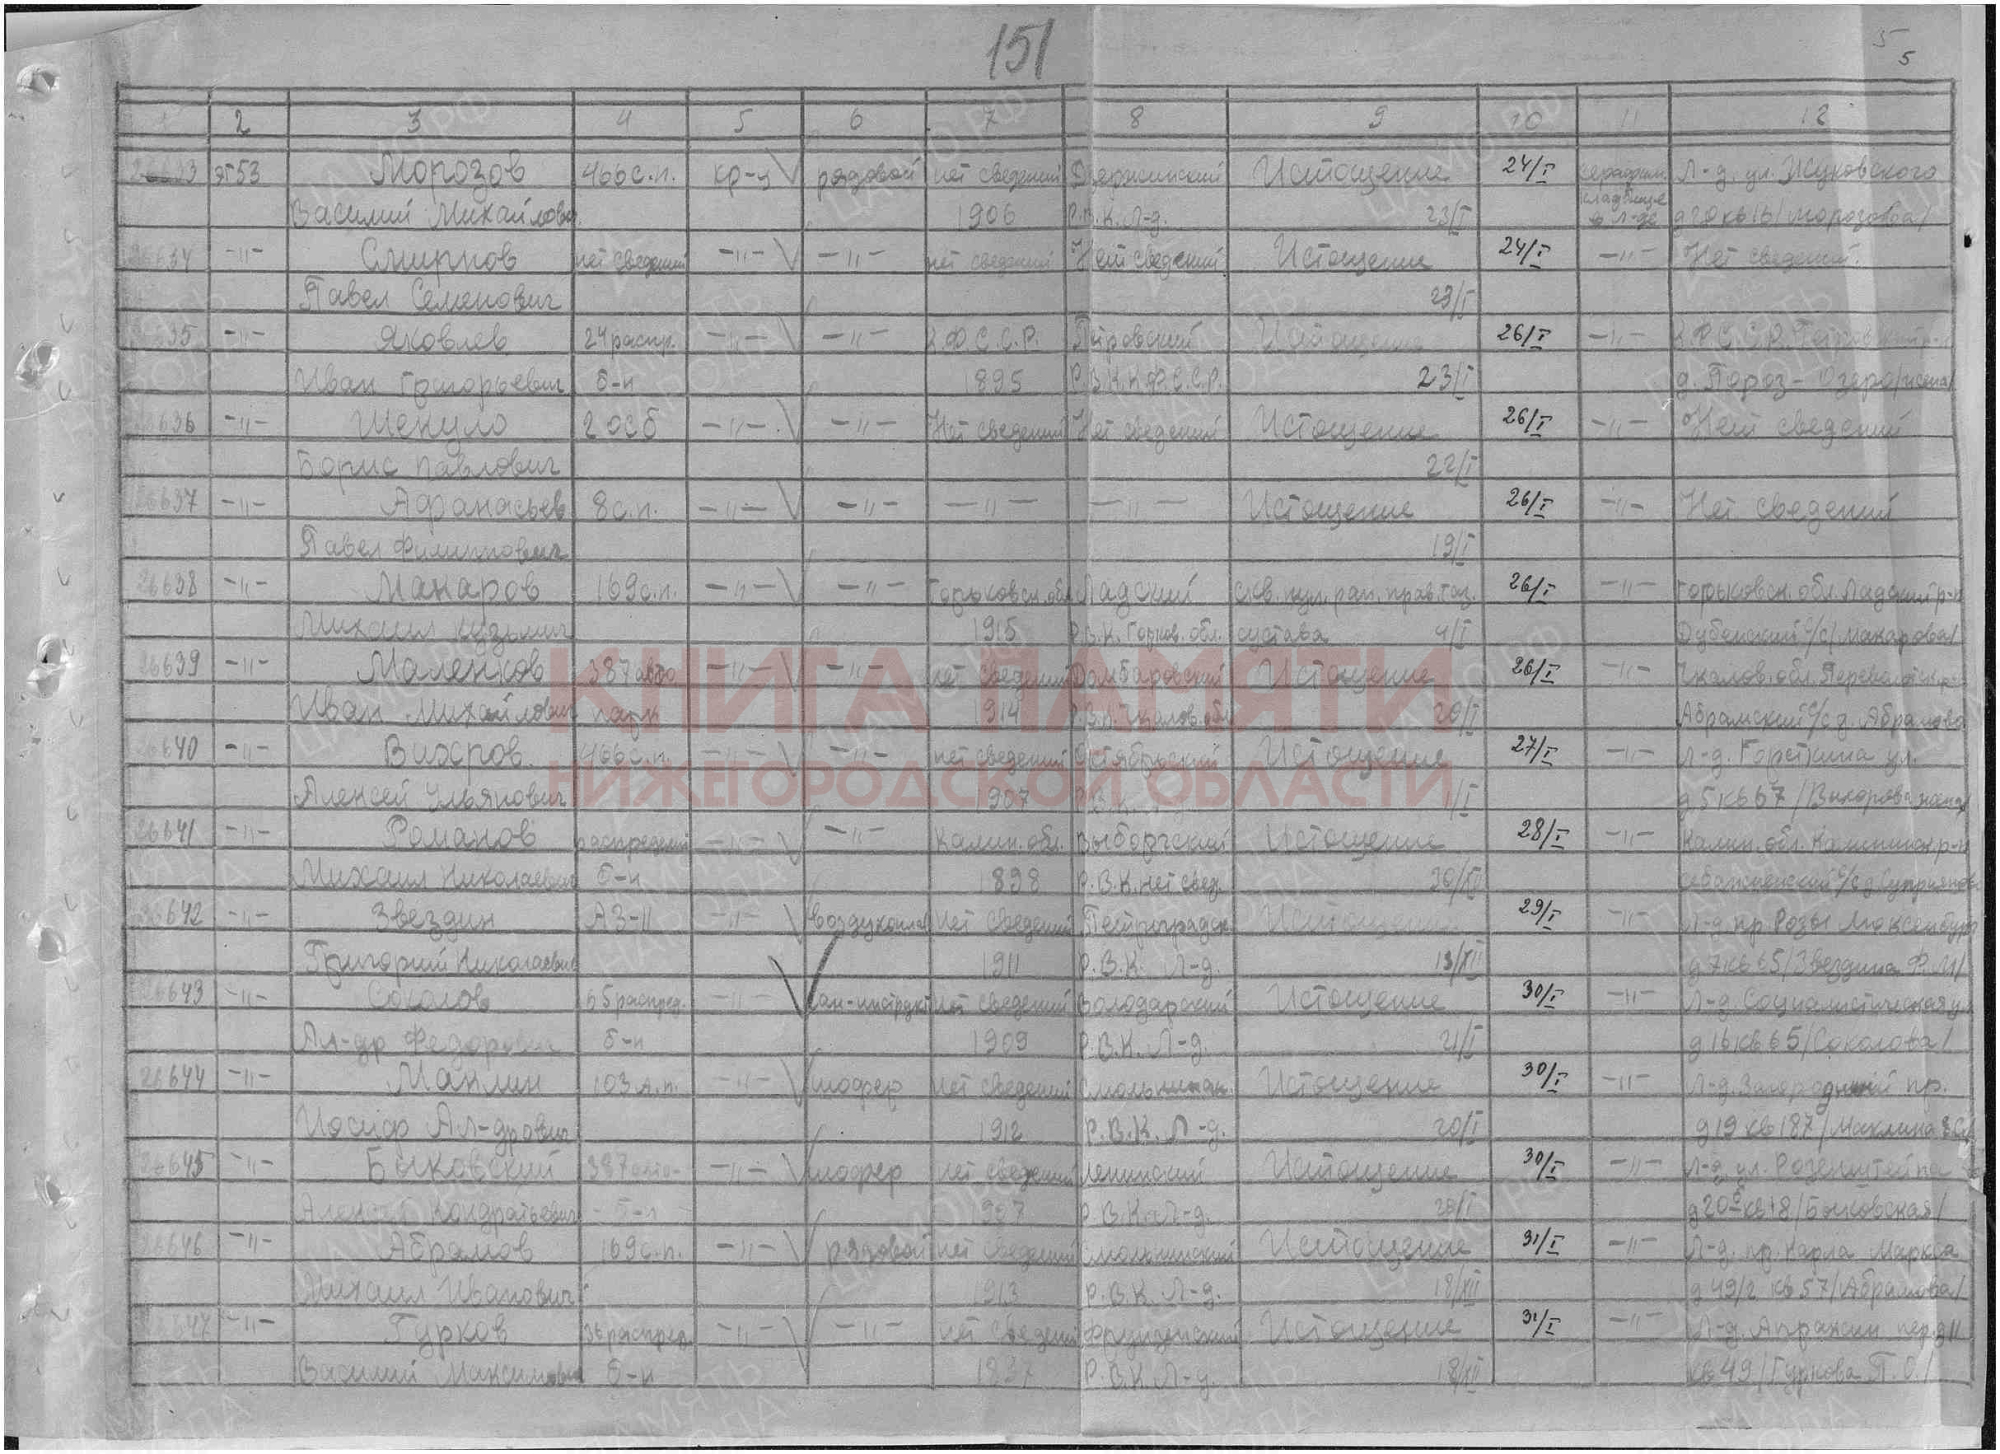 151
5
5
1 2 3 4 5 6 7 8 9 10 11 12
эг53 Морозов 466с.п. кр-ц рядовой нет сведений Дзержинский Истощение 24/I Серафим. Л-д. ул. Жуковского
Василий Михайлович 1906 Р.В.К. Л-д. 23/I кладбище в Л-де /Морозова/
26634 -"- Смирнов нет сведений -"- -"- нет сведений Нет сведений Истощение 24/I -"- Нет сведений.
Павел Семенович 23/I
35 -"- Яковлев 24 распр. -"- -"- К.Ф.С.С.Р. Петровский Истощение 26/I -"-
Иван Григорьевич б-н 1895 Р.В.К. К.Ф.С.С.Р. 23/I д. Пороз-Озеро/жена/
26636 -"- Шекуло 2 ОСБ -"- -"- Нет сведений Нет сведений Истощение 26/I -"- Нет сведений
Борис Павлович 22/I
26637 -"- Афанасьев 8с.п. -"- -"- -"- -"- Истощение 26/I -"- Нет сведений
Павел Филиппович 19/I
26638 -"- Макаров 169с.п. -"- -"- Горьковск. обл. Лядский скв. пул. ран. прав. таз. 26/I -"- Горьковск. обл. Лядский р-н
Михаил Кузьмич 1915 Р.В.К. Горьк. обл. сустава 4/I Дубенский с/с/Макарова/
26639 -"- Маленков 387 авто -"- -"- нет сведений Домбаровский Истощение 26/I -"- Чкалов. обл.
Иван Михайлович парк 1914 Р.В.К. Чкалов. обл. 20/I Абрамский с/с д. Абрамова
26640 -"- Вихров 466с.п. -"- -"- нет сведений Октябрьский Истощение 27/I -"- Л-д. Горсткина ул.
Алексей Ульянович 1907 /I д5 кв67
26641 -"- Романов распредел. -"- -"- Калин. обл. Выборгский Истощение 28/I -"- Калин. обл. Калинин. р-н
Михаил Николаевич б-н 1898 Р.В.К. нет свед. 30/XII
26642 -"- Звездин АЗ-11 -"- нет сведений Петроградск. Истощение 29/I -"- Л-д. пр. Розы Люксембург
Григорий Николаевич 1911 Р.В.К. Л-д. 13/XII д7 кв65/Звездина Ф.М/
26643 -"- Соколов 65 распред. -"- сан-инструкт нет сведений Володарский Истощение 30/I -"- Л-д. Социалистическая ул
Ал-др Федорович б-н 1909 Р.В.К. Л-д. 21/I д16 кв65/Соколова/
26644 -"- Маклин 103 а.п. -"- шофер нет сведений Смольнинск. Истощение 30/I -"- Л-д. Загородный пр.
Иосиф Ал-дрович 1912 Р.В.К. Л-д. 20/I д19 кв187/Маклина
26645 -"- Быковский 387 авто- -"- шофер нет сведений Ленинский Истощение 30/I -"- Л-д. ул. Розенштейна
Алексей Кондратьевич б-н 1907 Р.В.К. Л-д. 28/I /Быковская/
26646 -"- Абрамов 169с.п. -"- рядовой нет сведений Смольнинский Истощение 31/I -"- Л-д. пр. Карла Маркса
Михаил Иванович 1913 Р.В.К. Л-д. 18/XII д49/2 кв57/Абрамова/
47 -"- Гурков 36 распред. -"- -"- нет сведений Фрунзенский Истощение 31/I -"- Л-д. Апраксин пер. д11
Василий Максимович б-н Р.В.К. Л-д. 18/XII кв49/Гуркова П.О./
КНИГА ПАМЯТИ
НИЖЕГОРОДСКОЙ ОБЛАСТИ